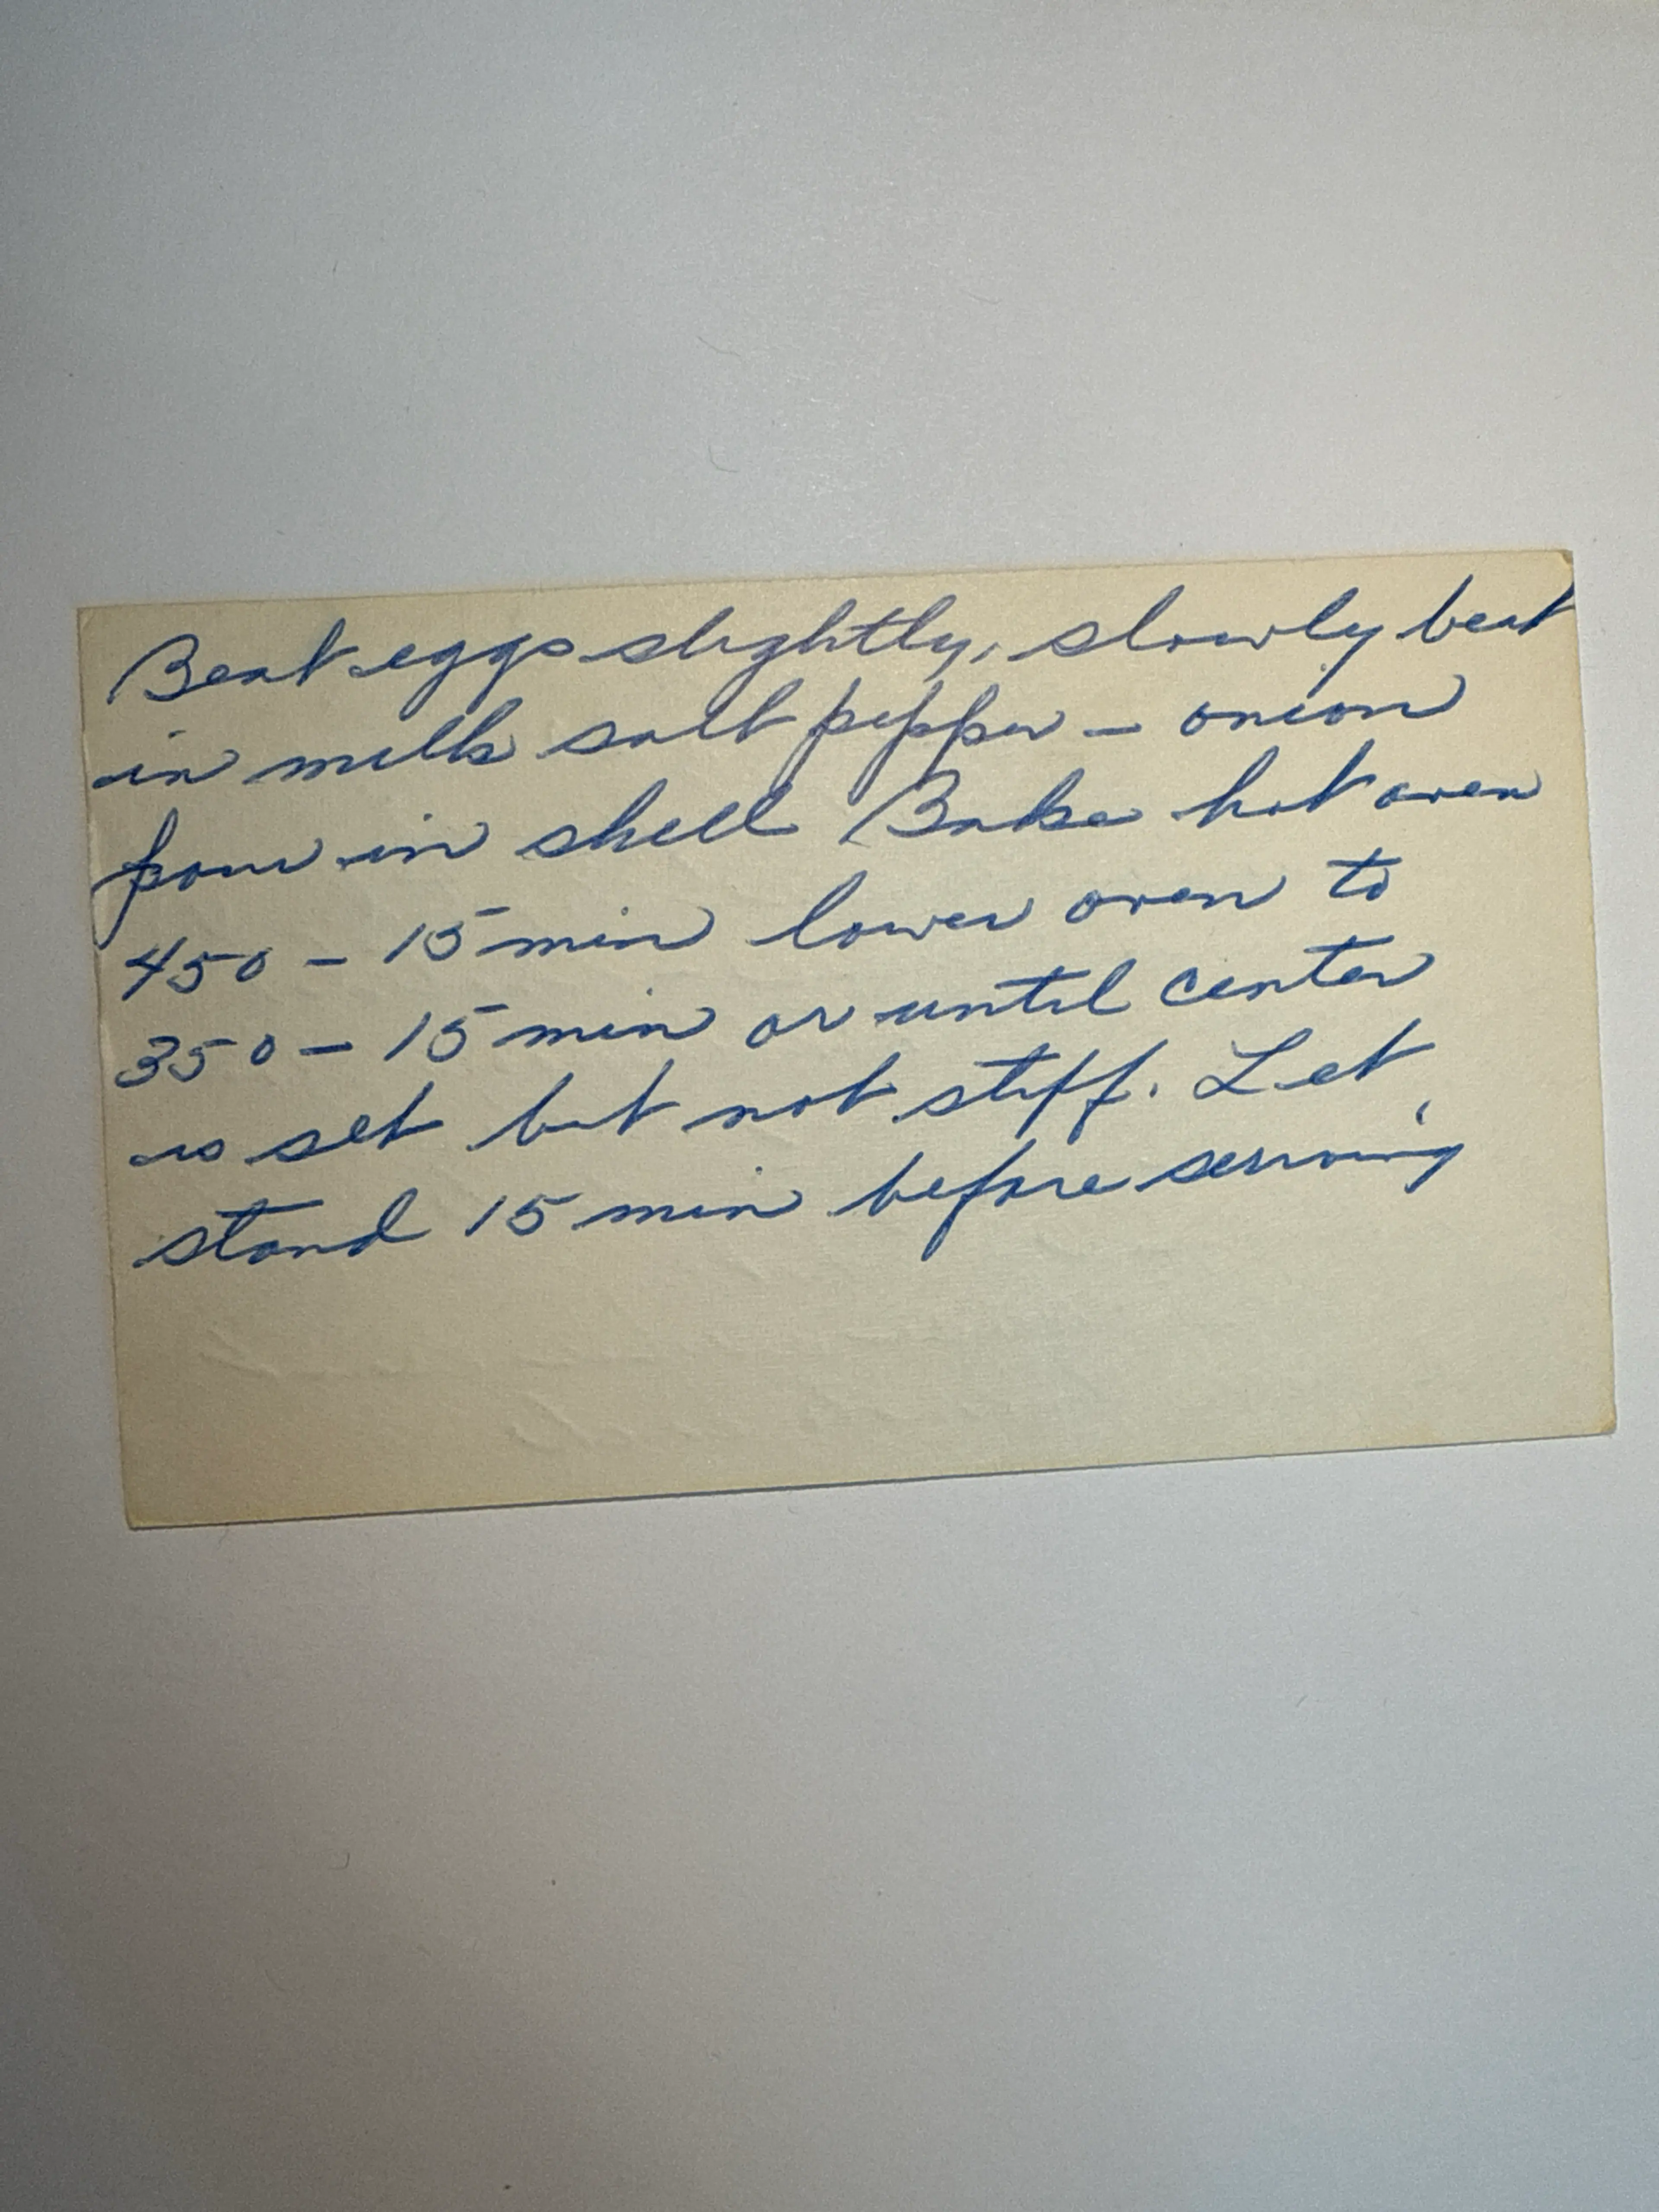 Beat eggs slightly, slowly beat
in milk salt pepper - onion
pour in shell Bake hot oven
450 - 15 min lower oven to
350 - 15 min or until center
is set but not stiff. Let
stand 15 min before serving